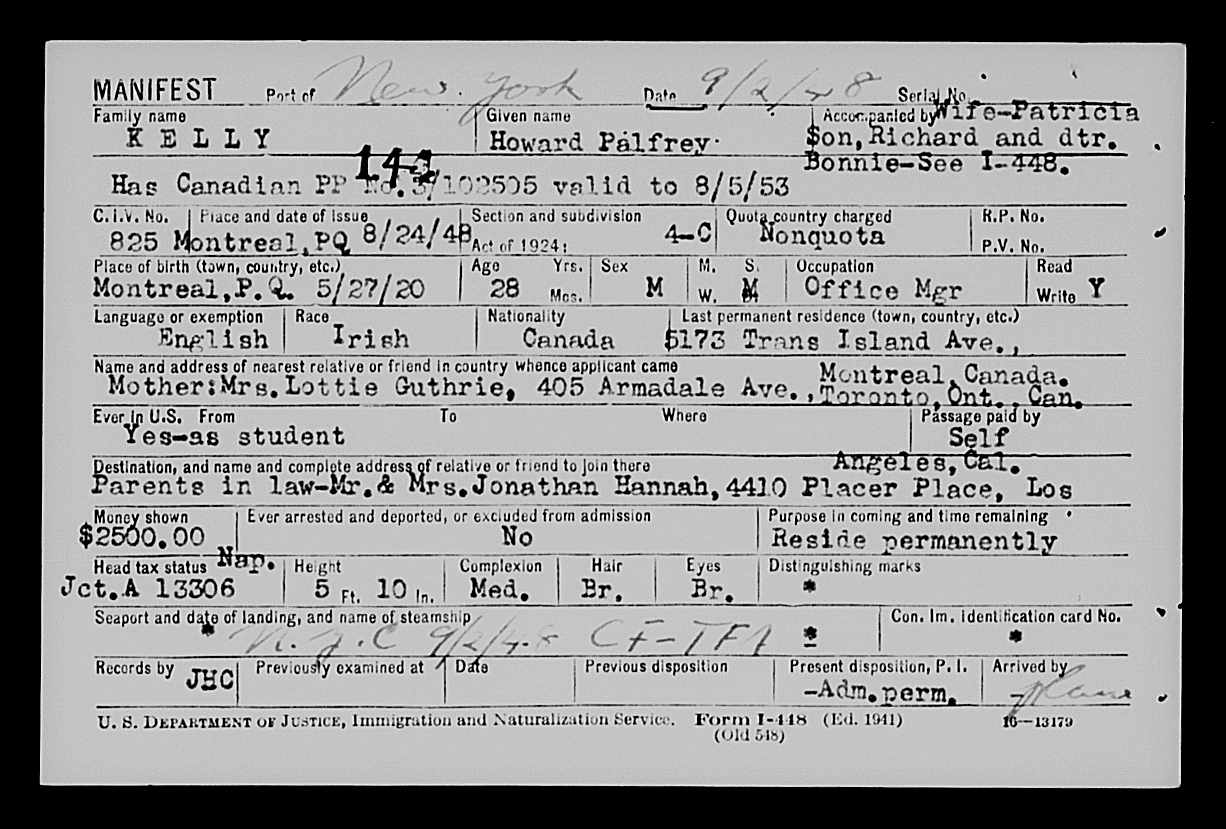 MANIFEST Port of New York Date 9/2/48 Serial No.
Family name Given name Accompanied by Wife-Patricia
K E L L Y Howard Palfrey Son, Richard and dtr.
144 Bonnie-See I-448.
Has Canadian PP No. 3/102505 valid to 8/5/53
C.I.V. No. Place and date of issue Section and subdivision Quota country charged R.P. No.
825 Montreal, PQ 8/24/48 Act of 1924: 4-C Nonquota P.V. No.
Place of birth (town, country, etc.) Age Yrs. Sex M. S. Occupation Read
Montreal, P.Q. 5/27/20 28 Mos. M W. M Office Mgr Write Y
Language or exemption Race Nationality Last permanent residence (town, country, etc.)
English Irish Canada 5173 Trans Island Ave.,
Name and address of nearest relative or friend in country whence applicant came Montreal, Canada.
Mother: Mrs. Lottie Guthrie, 405 Armadale Ave., Toronto, Ont., Can.
Ever in U.S. From To Where Passage paid by
Yes-as student Self
Destination, and name and complete address of relative or friend to join there Angeles, Cal.
Parents in law-Mr. & Mrs. Jonathan Hannah, 4410 Placer Place, Los
Money shown Ever arrested and deported, or excluded from admission Purpose in coming and time remaining
$2500.00 No Reside permanently
Head tax status Nap. Height Complexion Hair Eyes Distinguishing marks
Jct. A 13306 5 Ft. 10 In. Med. Br. Br. *
Seaport and date of landing, and name of steamship Con. Im. Identification card No.
* N.Y.C 9/2/48 CF-TFA * *
Records by JHC Previously examined at Date Previous disposition Present disposition, P. I. Arrived by
-Adm. perm.
U. S. DEPARTMENT OF JUSTICE, Immigration and Naturalization Service. Form I-448 (Ed. 1941) 16—13179
(Old 548)